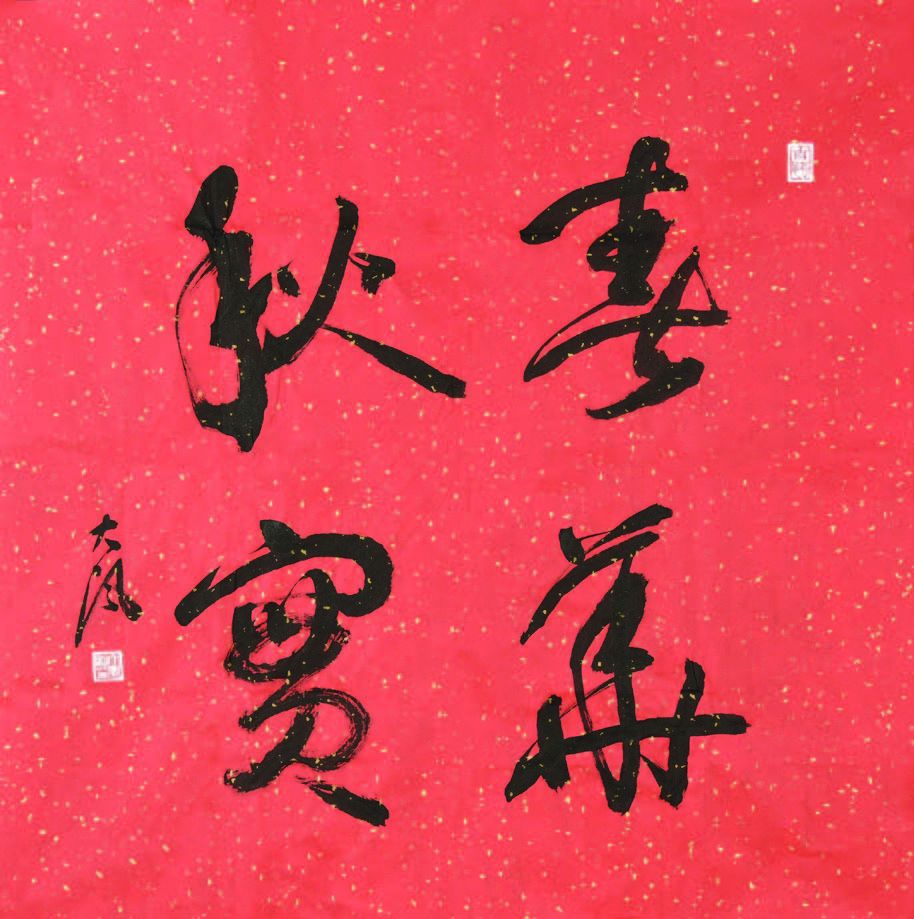 春華
秋實
大风